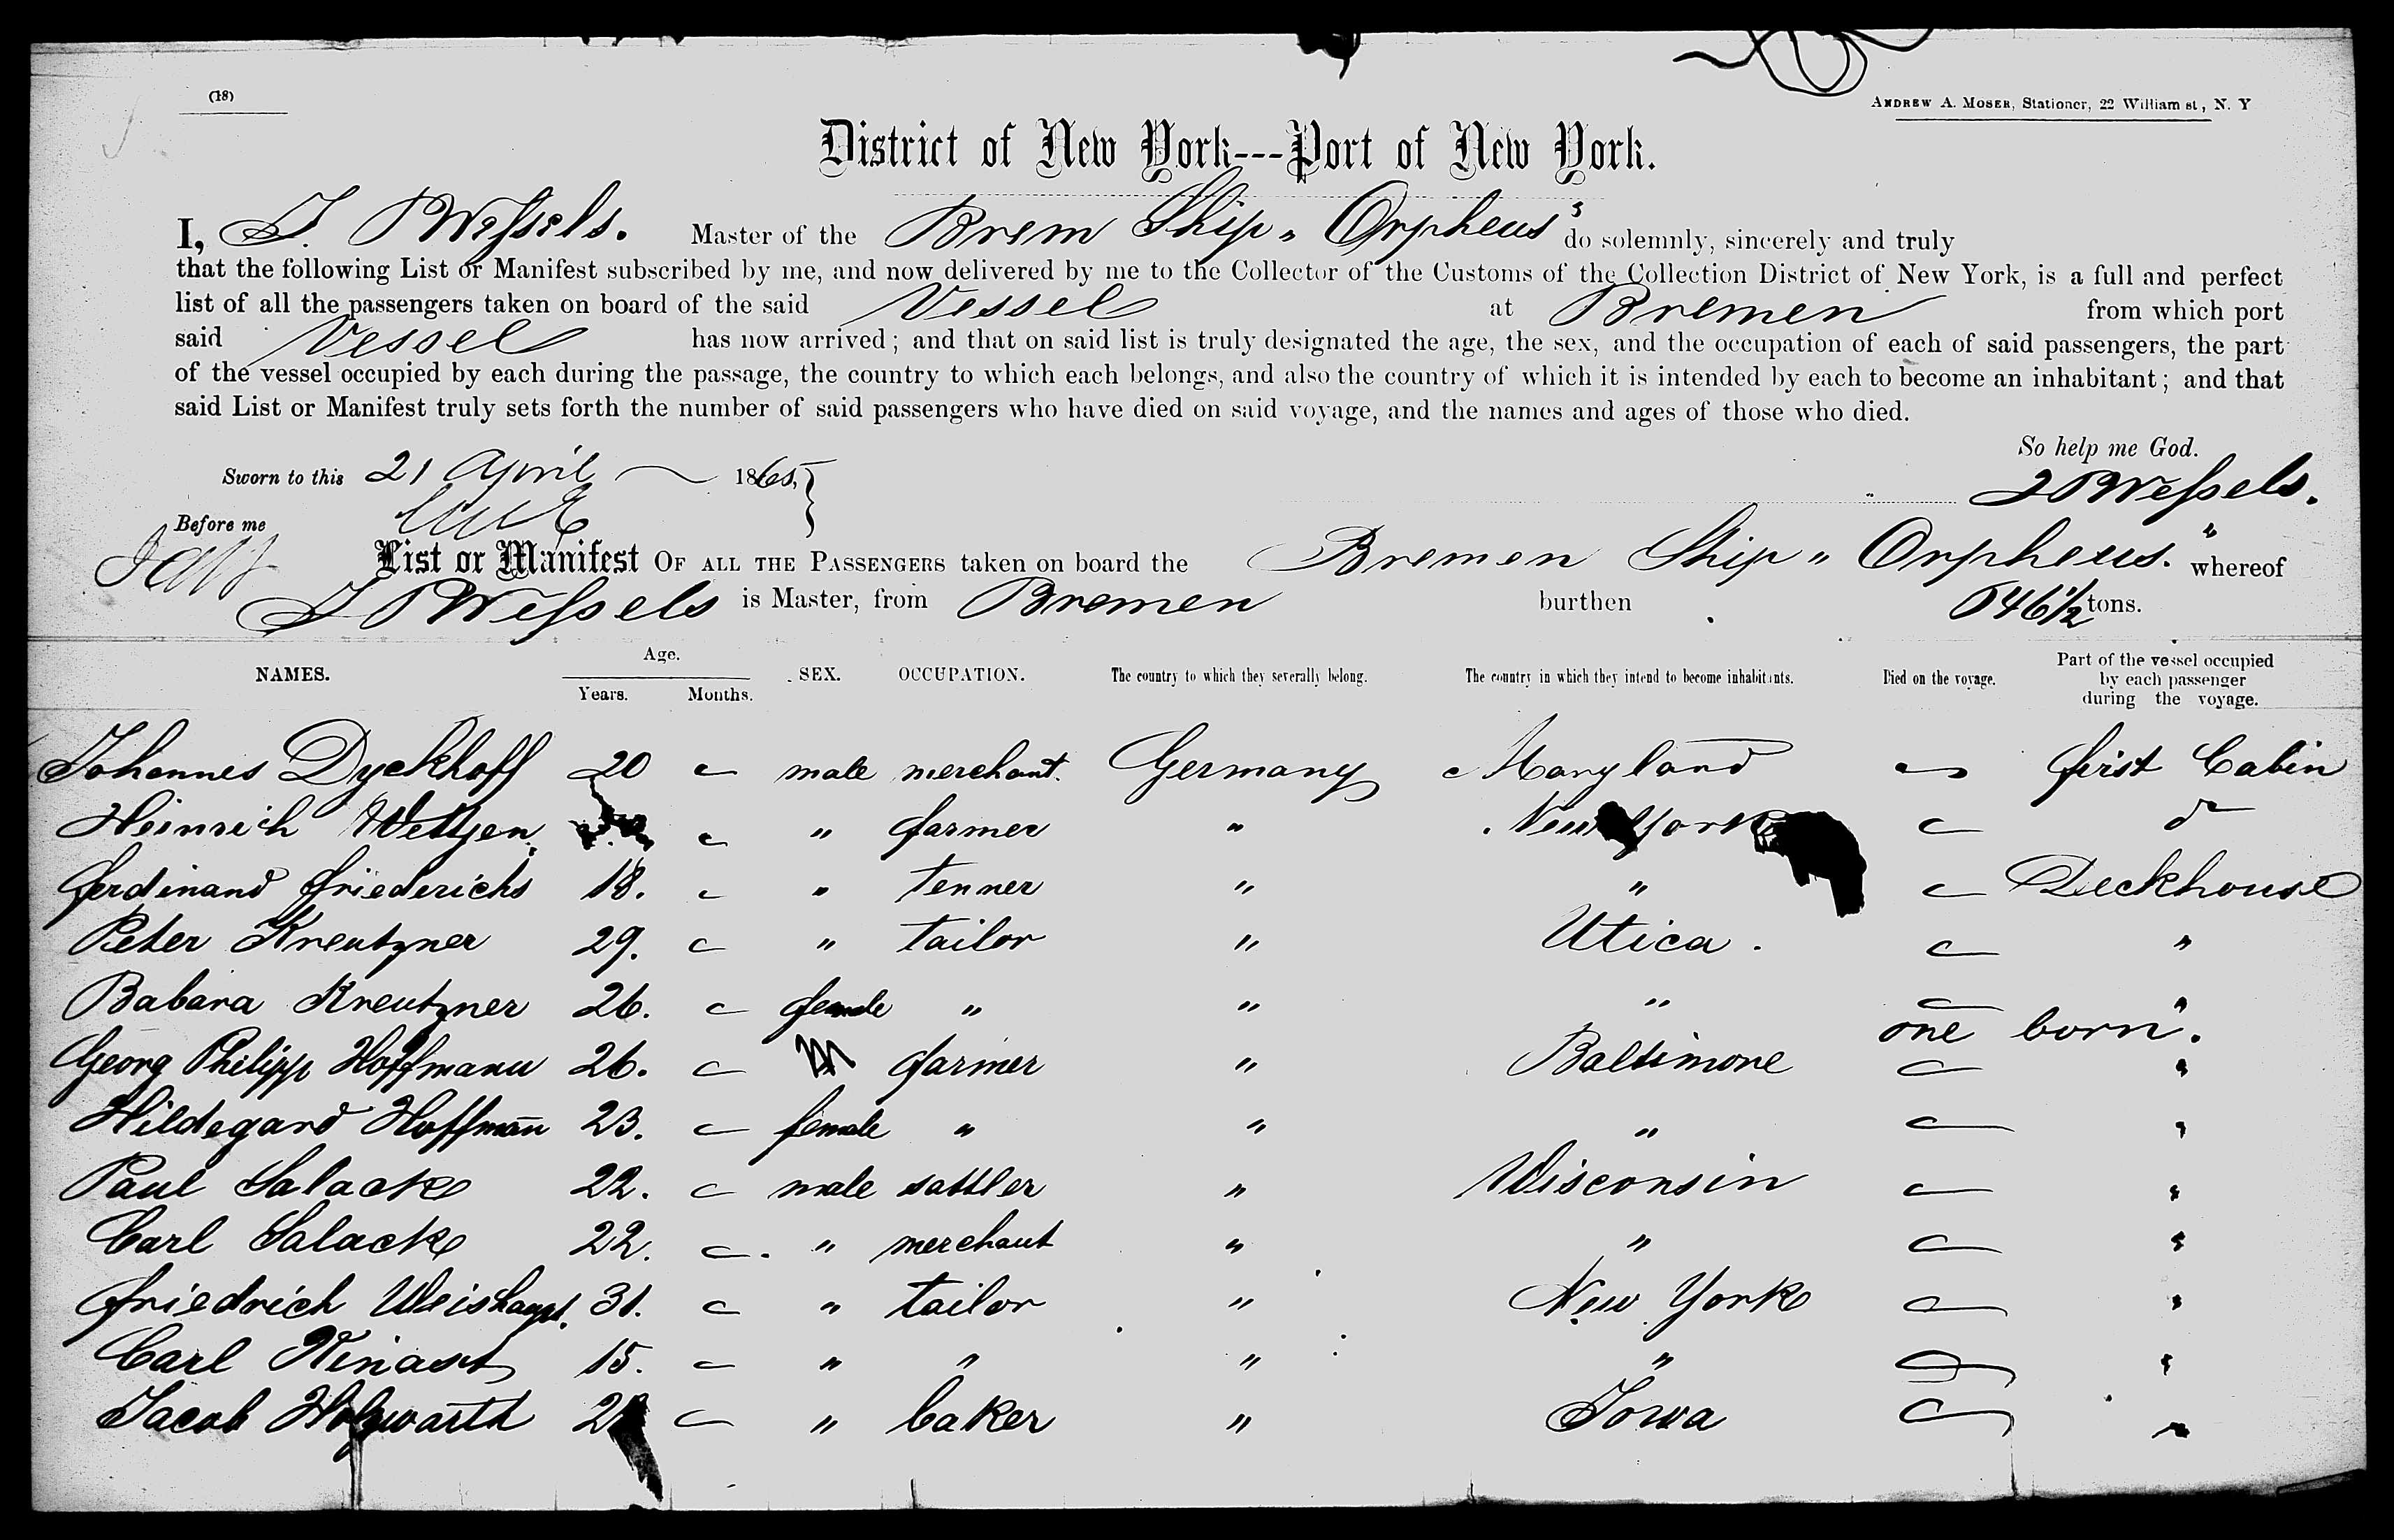 (18)
ANDREW A. MOSER, Stationer, 22 William st, N. Y
District of New York---Port of New York.
I, J. Wessels. Master of the Brem Ship „ Orpheus" do solemnly, sincerely and truly
that the following List or Manifest subscribed by me, and now delivered by me to the Collector of the Customs of the Collection District of New York, is a full and perfect
list of all the passengers taken on board of the said Vessel at Bremen from which port
said Vessel has now arrived; and that on said list is truly designated the age, the sex, and the occupation of each of said passengers, the part
of the vessel occupied by each during the passage, the country to which each belongs, and also the country of which it is intended by each to become an inhabitant; and that
said List or Manifest truly sets forth the number of said passengers who have died on said voyage, and the names and ages of those who died.
So help me God.
Sworn to this 21 April 1865, Wessels.
Before me
List or Manifest OF ALL THE PASSENGERS taken on board the Bremen Ship „ Orpheus." whereof
Wessels is Master, from Bremen burthen 546 1/2 tons.
NAMES. Age. Years. Months. SEX. OCCUPATION. The country to which they severally belong. The country in which they intend to become inhabitants. Died on the voyage. Part of the vessel occupied by each passenger during the voyage.
Johannes Dyckhoff 20 male merchant. Germany Maryland first Cabin
Heinrich " farmer " New York do
Ferdinand Friederichs 18. " tenner " " Deckhouse
Peter Kreutzner 29. " tailor " Utica. "
Babara Kreutzner 26. female " " " "
one born.
Georg Philipp Hoffmann 26. m farmer " Baltimore "
Hildegard Hoffmañ 23. female " " " "
Paul Salacke 22. male sattler " Wisconsin "
Carl Salacke 22. " merchant " " "
Friedrich Weishaupt. 31. " tailor " New York "
Carl Kinast 15. " " " " "
Jacob Holzwarth " baker " Iowa "